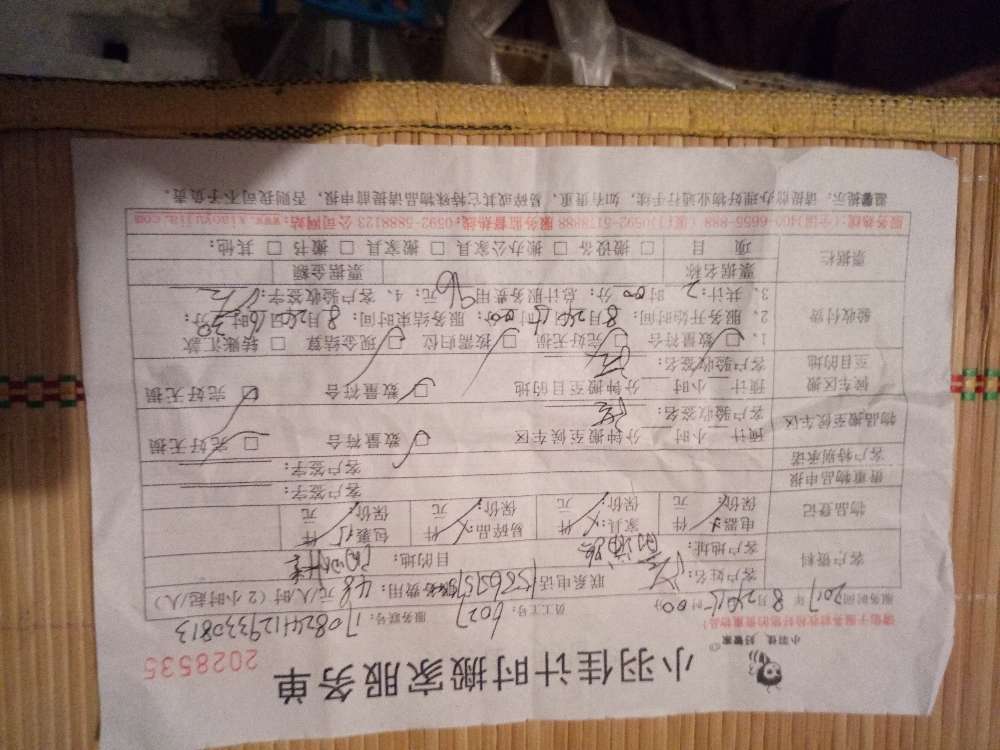 小羽佳 好管家
小羽佳计时搬家服务单
2028535
员工工号: 6027 服务联号: 170824112933081 3
服务时间: 2017年8月24日15时00分
服务费用: 48元/人/时(2小时起/人)
客户资料
客户姓名: 联系电话
客户地址: 目的地:
物品登记
电器 件 家具 件 易碎品 件 包裹 15 件
保价: 元 保价: 元 保价: 元 保价: 元
贵重物品申报 客户签字:
客户特别承诺 客户签字:
物品搬至候车区
预计 小时 分钟搬至候车区 数量符合 □ 完好无损
客户验收签名:
候车区搬至目的地
预计 小时 分钟搬至目的地 数量符合 □ 完好无损
客户验收签名:
验收付费
1、□ 数量符合 □ 完好无损 □ 按需归位 □ 现金结算 □ 转账汇款
2、服务开始时间: 8月24日15时00分; 服务结束时间: 8月24日16时30分;
3、共计: 2时00分; 总计服务费用 96 元; 4、客户验收签字:
票据栏
票据名称 票据金额
项目 □ 搬设备 □ 搬办公家具 □ 搬家具 □ 搬书 □ 其他:
服务热线:(全国)400-6655-888 (厦门)0592-5138898 服务监督热线:0592-5888123 公司网站:www.xiaoyujia.com
温馨提示: 请提前办理好物业通行手续, 如有贵重, 易碎或其它特殊物品请提前申报, 否则我司不予负责.